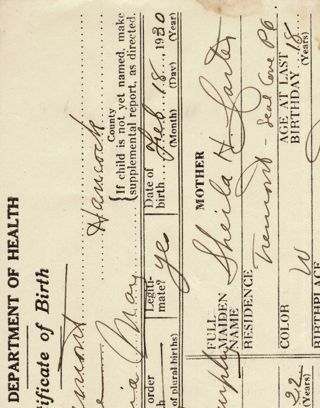 DEPARTMENT OF HEALTH
ificate of Birth
emont Hancock
County
{If child is not yet named, make
supplemental report, as directed.
ia May
order
of plural births)
Legiti-
mate? ye
Date of
birth Feb 18, 1930
(Month) (Day) (Year)
MOTHER
FULL
MAIDEN
NAME Sheila H
RESIDENCE Tremont - Seal Cove PO
COLOR W
AGE AT LAST
BIRTHDAY 18
(Years)
BIRTHPLACE
22
(Years)